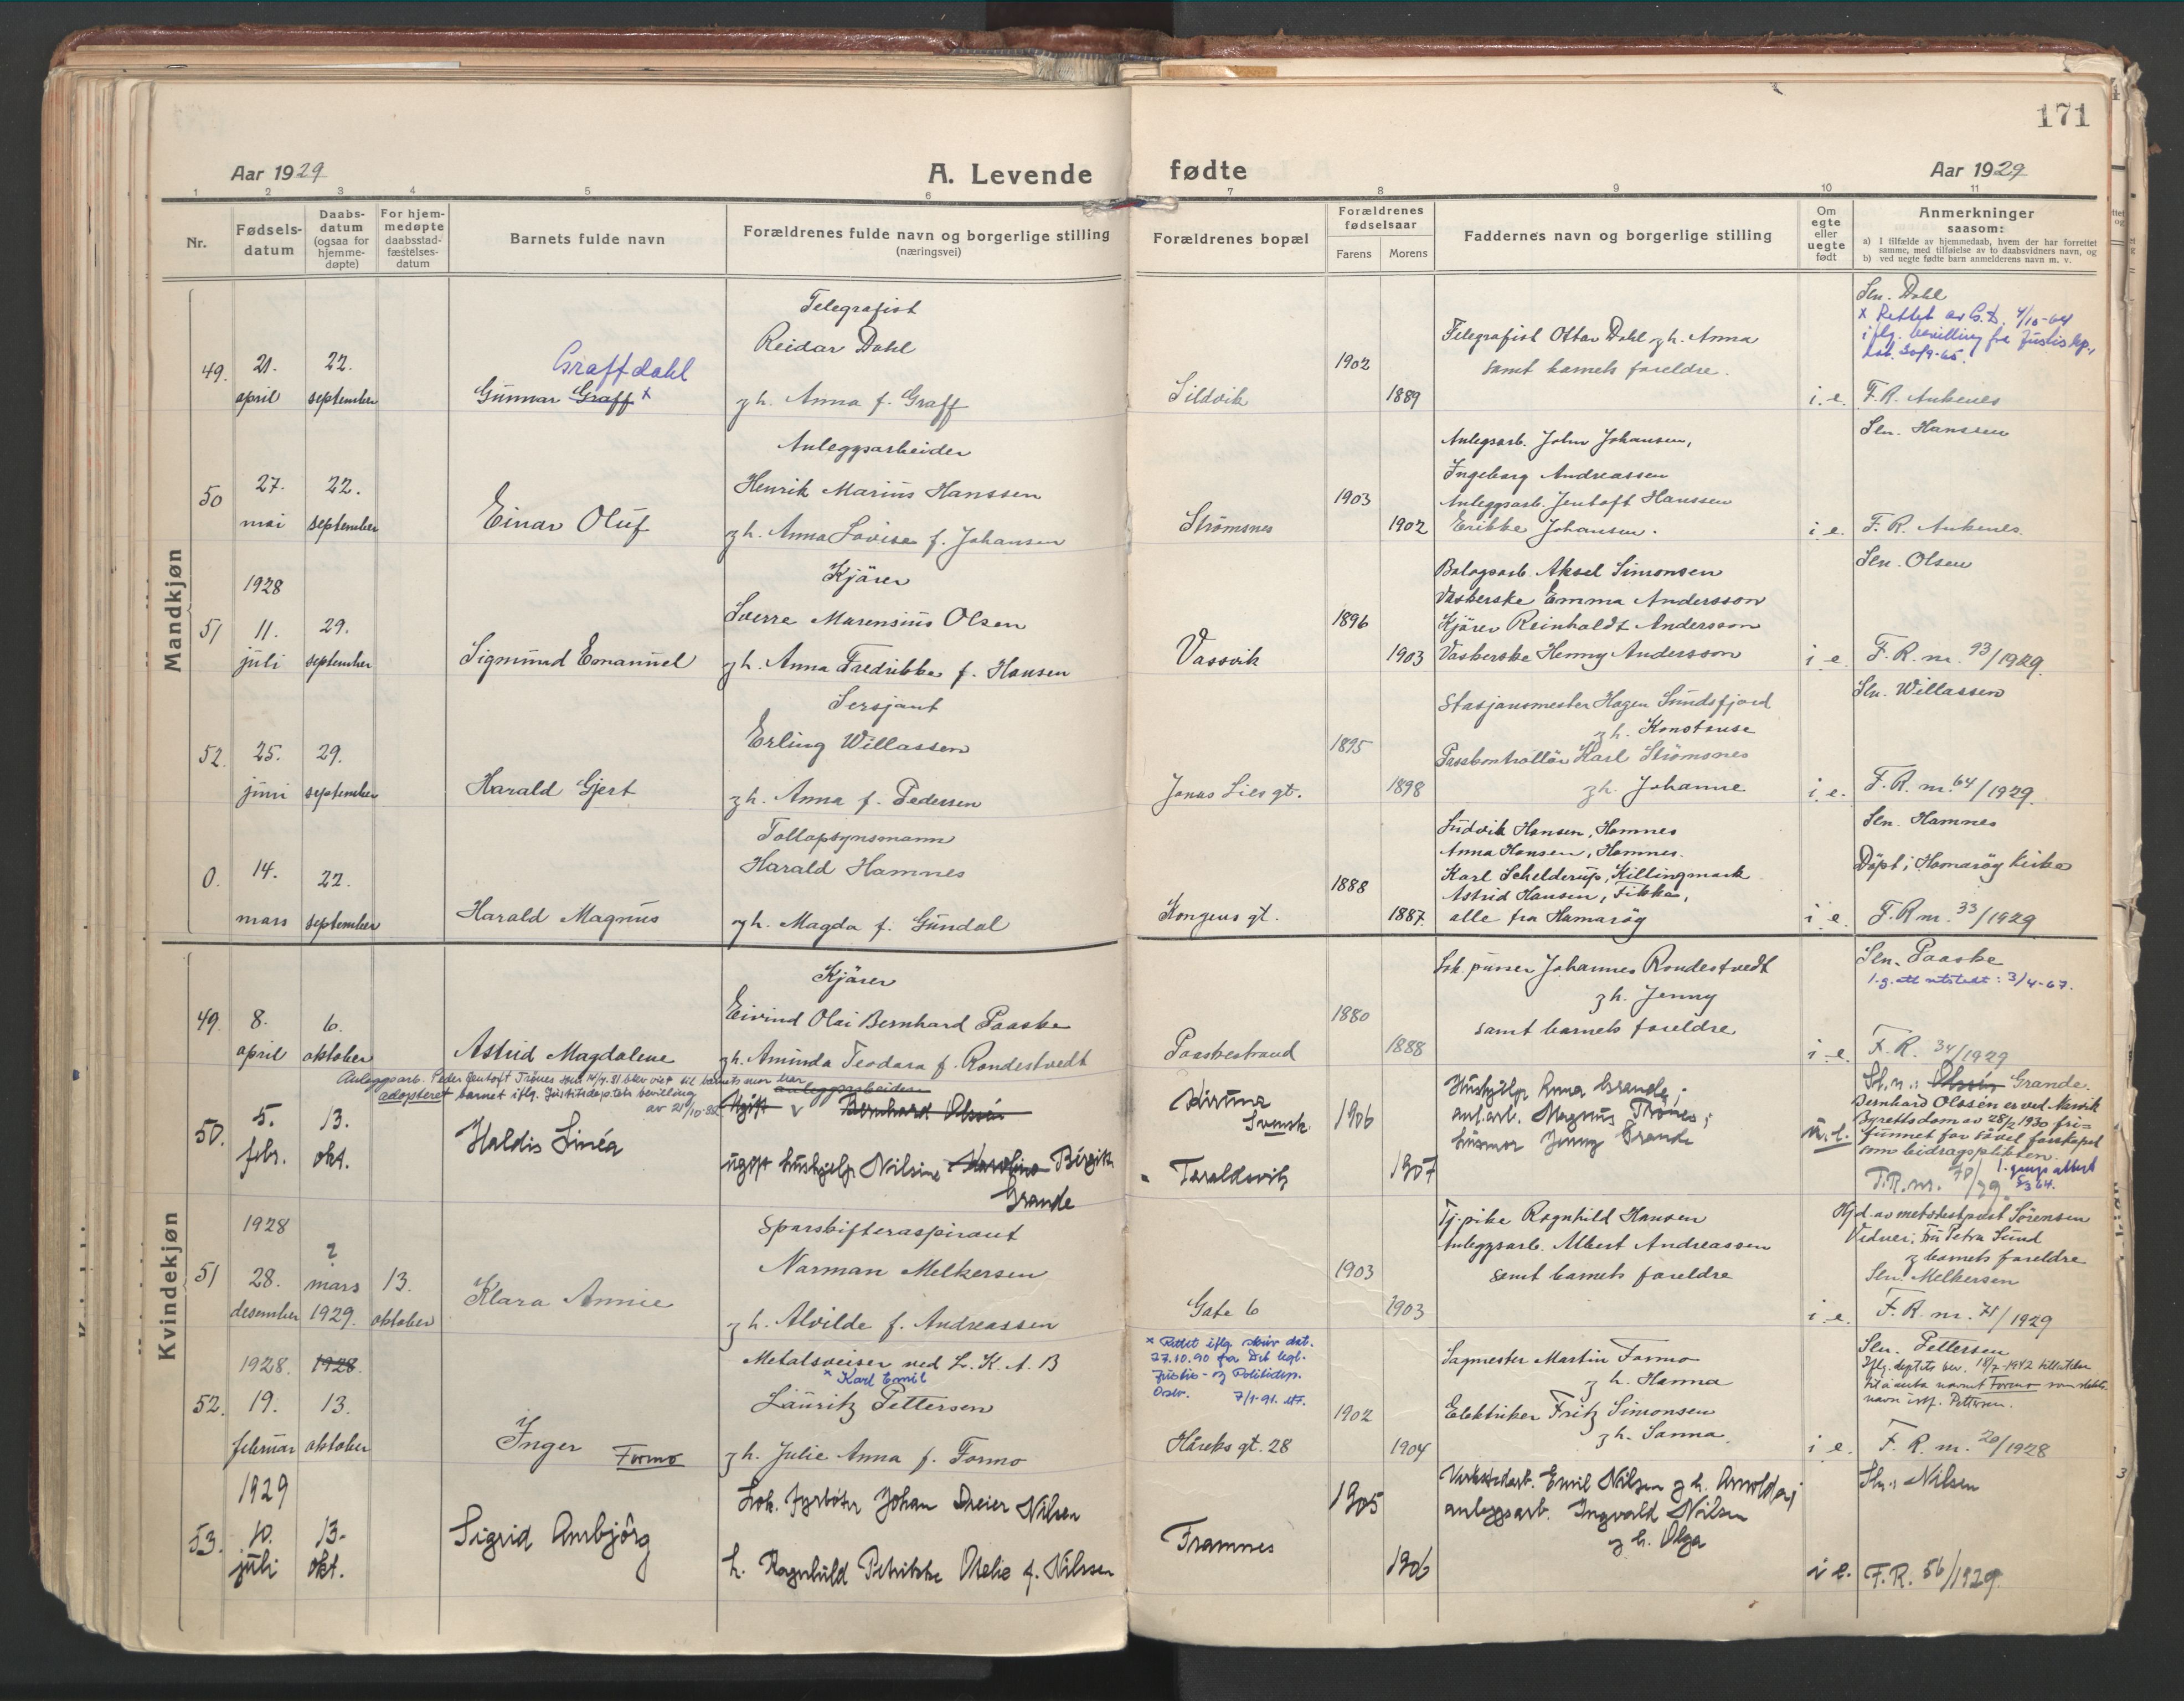 171
Aar 1929
A. Levende fødte
Aar 1929
1 2 3 4 5 6 7 8 9 10 11
Nr.
Fødsels-
datum
Daabs-
datum
(ogsaa for
hjemme-
døpte)
For hjem-
medøpte
daabsstad-
fæstelses-
datum
Barnets fulde navn
Forældrenes fulde navn og borgerlige stilling
(næringsvei)
Forældrenes bopæl
Forældrenes
fødselsaar
Farens Morens
Faddernes navn og borgerlige stilling
Om
egte
eller
uegte
født
Anmerkninger
saasom:
a) I tilfælde av hjemmedaab, hvem der har forrettet
samme, med tilføielse av to daabsvidners navn, og
b) ved uegte fødte barn anmelderens navn m. v.
Mandkjøn
49.
21.
april
22.
september
Graffdahl
Gunnar Graff x
Telegrafist
Reidar Dahl
g h. Anna f. Graff
Sildvik
1902
1889
Telegrafist Ottar Dahl g h. Anna
samt barnets foreldre.
i. e.
Sln. Dahl
x Rettet av S.D. 4/10-64
iflg. bevilling fra Justisdp.,
dat. 30/9-65.
F. R. Ankenes
50
27.
mai
22.
september
Einar Oluf
Anleggsarbeider
Henrik Marius Hanssen
g h. Anna Lovise f. Johansen
Strømsnes
1903
1902
Anlegsarb. John Johansen,
Ingeborg Andreassen
Anleggsarb. Jentoft Hanssen
Erikke Johansen.
i e.
Sln. Hanssen
F. R. Ankenes.
51
1928
11.
juli
29.
september
Sigmund Emanuel
Kjører
Sverre Marensius Olsen
g h. Anna Fredrikke f. Hansen
Vassvik
1896
1903
Bolagsarb. Aksel Simonsen
Vaskerske Emma Andersson
Kjører Reinholdt Andersson
Vaskerske Henny Andersson
i e.
Sln. Olsen
F. R. nr. 93/1929.
52.
25.
juni
29.
september
Harald Gjert
Sersjant
Erling Willassen
g h. Anna f. Pedersen
Jonas Lies gt.
1895
1898
Stasjonsmester Hagen Sundsfjord
g h. Konstanse
Passkontrollør Karl Strømsnes
g h. Johanne
i. e.
Sln. Willassen
F. R. nr. 64/1929.
0.
14.
mars
22.
september
Harald Magnus
Tollopsynsmann
Harald Hamnes
g h. Magda f. Gundal
Kongens gt.
1888
1887.
Ludvik Hansen, Hamnes
Anna Hansen, Hamnes.
Karl Schelderup, Killingmark
Astrid Hansen, Fikke,
alle fra Hamarøy
i e.
Sln. Hamnes
Døpt i Hamarøy Kirke
F. R nr. 33/1929
Kvindekjøn
49.
8.
april
6.
oktober
Astrid Magdalene
Kjører
Eivind Olai Bernhard Paaske
g h. Aminda Teodora f. Rondestvedt
Paaskestrand
1880
1888
Lok. pusser Johannes Rondestvedt
g h. Jenny
samt barnets foreldre
i e.
Sln. Paaske
1. g. att utstedt: 3/4-67.
F. R. 34/1929
Anleggsarb. Peder Jentoft Trønes som 14/4.31 blev viet til barnets mor har
adopteret barnet iflg. Justitsdep.tets bevilling
av 21/10-32
50.
5.
febr.
13.
okt.
Haldis Linéa
anleggsarbeider
Ugift Bernhard Olssén
ugift hushjelp Nilsine Karoline Birgitte
Grande
Kiruna
Svensk
Taraldsvik
1906
1907
Hushjelp Anna Grande;
anl.arb. Magnus Trønes;
husmor Jenny Grande
u. e.
Sl.n.: Olssén Grande.
Bernhard Olssén er ved Narvik
Byrettsdom av 28/2 1930 fri-
funnet for såvel farskapet
som bidragsplikten.
F.R. nr. 70/29.
51
1928
28.
desember
?
mars
1929.
13.
oktober
Klara Annie
Sporskifteraspirant
Norman Melkersen
g h. Alvilde f. Andreassen
Gate 6
1903
1903
Tj. pike Ragnhild Hansen
Anleggsarb. Albert Andreassen
samt barnets foreldre
i e.
Hjd. av metodistprest Sørensen
Vidner: Fru Petra Lund
g barnets foreldre
Sln. Melkersen
F. R. nr. 71/1929
52.
1928.
19.
februar
1928.
13.
oktober
Inger Formo
Metalsveiser ved L. K. A. B
x Karl Emil
Lauritz Pettersen
g h. Julie Anna f. Formo
x Rettet iflg. skriv dat.
27.10.90 fra Det kgl.
Justis- og Politidep.
Oslo. 7/1-91.
Håreks gt. 28
1902
1904
Sagmester Martin Formo
g h. Hanna
Elektriker Fritz Simonsen
g h. Sanna.
i e.
Sln. Pettersen
Iflg. deptets bev. 18/7-1942 tillatelse
til å anta navnet Formo som slekts-
navn istf. Pettersen.
F. R. nr. 20/1928
53.
1929
10.
juli
13.
okt.
Sigrid Annbjørg
Lok. fyrbøter Johan Dreier Nilsen
h. Ragnhild Petrikke Otelie f. Nilssen
Framnes
1905
1906
Verkstedarb. Emil Nilsen g h. Arnolda;
anleggsarb. Ingvald Nilsen
g h. Olga
i e.
Sln.: Nilsen
F. R. 56/1929.